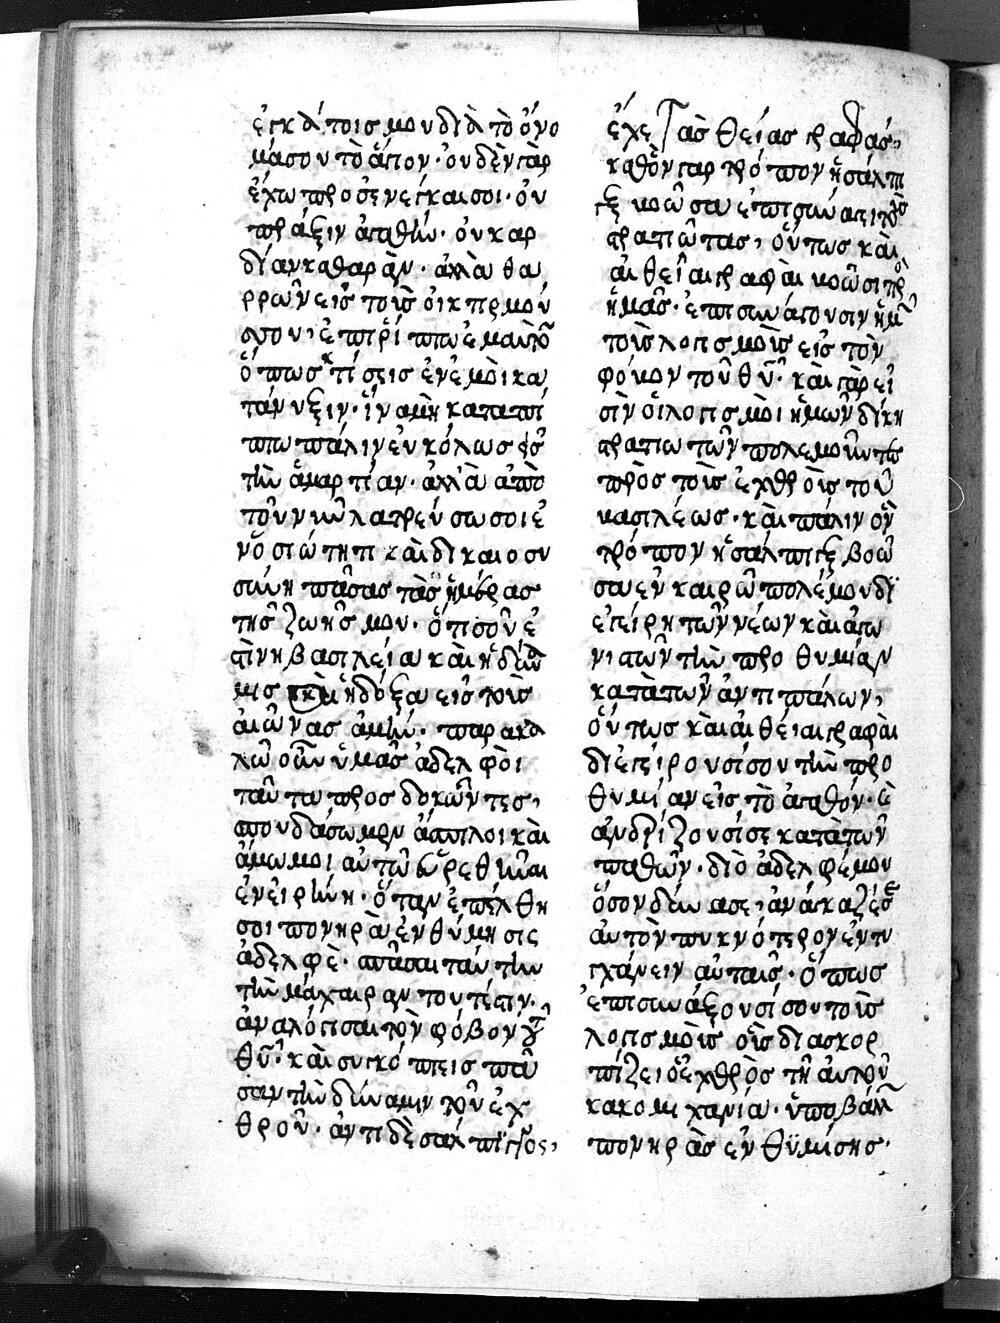 ἐγκάτοις μου διὰ τὸ ὄνο
μά σου τὸ ἅγιον· οὐδὲν γὰρ
ἔχω προσενέγκαι σοι· οὐ
πράξιν ἀγαθήν· οὐ καρ
δίαν καθαρὰν· ἀλλὰ θα
ρρῶν εἰς τοὺς οἰκτιρμούς
σου· ἐπιρίπτω ἐμαυτὸν
ὅπως κτίσεις ἐν ἐμοὶ κα
τάνυξιν· ἵνα μὴ καταπί
πτω πάλιν εὐκόλως εἰς
τὴν ἁμαρτίαν· ἀλλὰ ἀπὸ
τοῦ νῦν λατρεύσω σοι ἐ
ν ὁσιότητι καὶ δικαιοσυ
σύνη πάσας τὰς ἡμέρας
τῆς ζωῆς μου· ὅτι σοῦ ἐ
στὶν ἡ βασιλεία καὶ ἡ δύνα
μις καὶ ἡ δόξα εἰς τοὺς
αἰῶνας ἀμήν· παρακα
λῶ οὖν ὑμᾶς ἀδελφοὶ
ταῦτα προσδοκῶντες,
σπουδάσωμεν ἄσπιλοι καὶ
ἄμωμοι αὐτῶ εὑρεθῆναι
ἐν εἰρήνη· ὅταν ἐπέλθη
σοι πονηρὰ ἐνθύμησις
ἀδελφὲ· σπάσαι ταύτην
τὴν μάχαιραν τουτέστιν·
ἀναλόγισαι τὸν φόβον τοῦ
θῦ· καὶ συγκόπτεις πᾶ
σαν τὴν δύναμιν τοῦ ἐχ
θροῦ· ἀντὶ δὲ σάλπιγγος,
ἔχε τὰς θείας γραφάς,
καθὸν γὰρ τρόπον ἡ σάλπι
γξ βοῶσα ἐπισυνάγει τοὺς
στρατιῶτας, οὕτως καὶ
αἱ θεῖαι γραφαὶ βοῶσι πρὸς
ἡμᾶς· ἐπισυνάγουσιν ἡμῶν
τοὺς λογισμοὺς εἰς τὸν
φόβον τοῦ θῦ· καὶ γὰρ εἰ
σὶν οἱ λογισμοὶ ἡμῶν δίκη
στρατιωτῶν πολεμούντων
πρὸς τοὺς ἐχθροὺς τοῦ
βασιλέως· καὶ πάλιν ὃν
τρόπον ἡ σάλπιγξ βοῶ
σα ἐν καιρῶ πολέμου δι
εγείρη τῶν νέων καὶ ἀγω
νιστῶν τὴν προθυμίαν
κατὰ τῶν ἀντιπάλων,
οὕτως καὶ αἱ θείαι γραφαὶ
διεγείρουσί σου τὴν προ
θυμίαν εἰς τὸ ἀγαθόν· καὶ
ἀνδρίζουσί σε κατὰ τῶν
παθῶν· διὸ ἀδελφέ μου
ὅσον δύνασε, ἀνάγκαζε σε
αὐτὸν πυκνότερον ἐντυ
γχάνειν αὐταῖς· ὅπως
ἐπισυνάξουσί σου τοὺς
λογισμοὺς οὓς διασκορ
πίζει ὁ ἐχθρὸς τῆ αὐτοῦ
κακομηχανία· ὑποβάλλων
πονηρὰς ἐνθυμήσης·